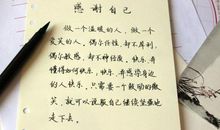 感谢自己
做一个温暖的人，做一个
爱笑的人，偶尔任性，却不犀利，
偶尔敏感，却不神经质，快乐并
懂得如何快乐，快乐，并感染身边
的人快乐，只需要一个鼓励的微
笑，就可以说服自己继续坚强地
走下去。